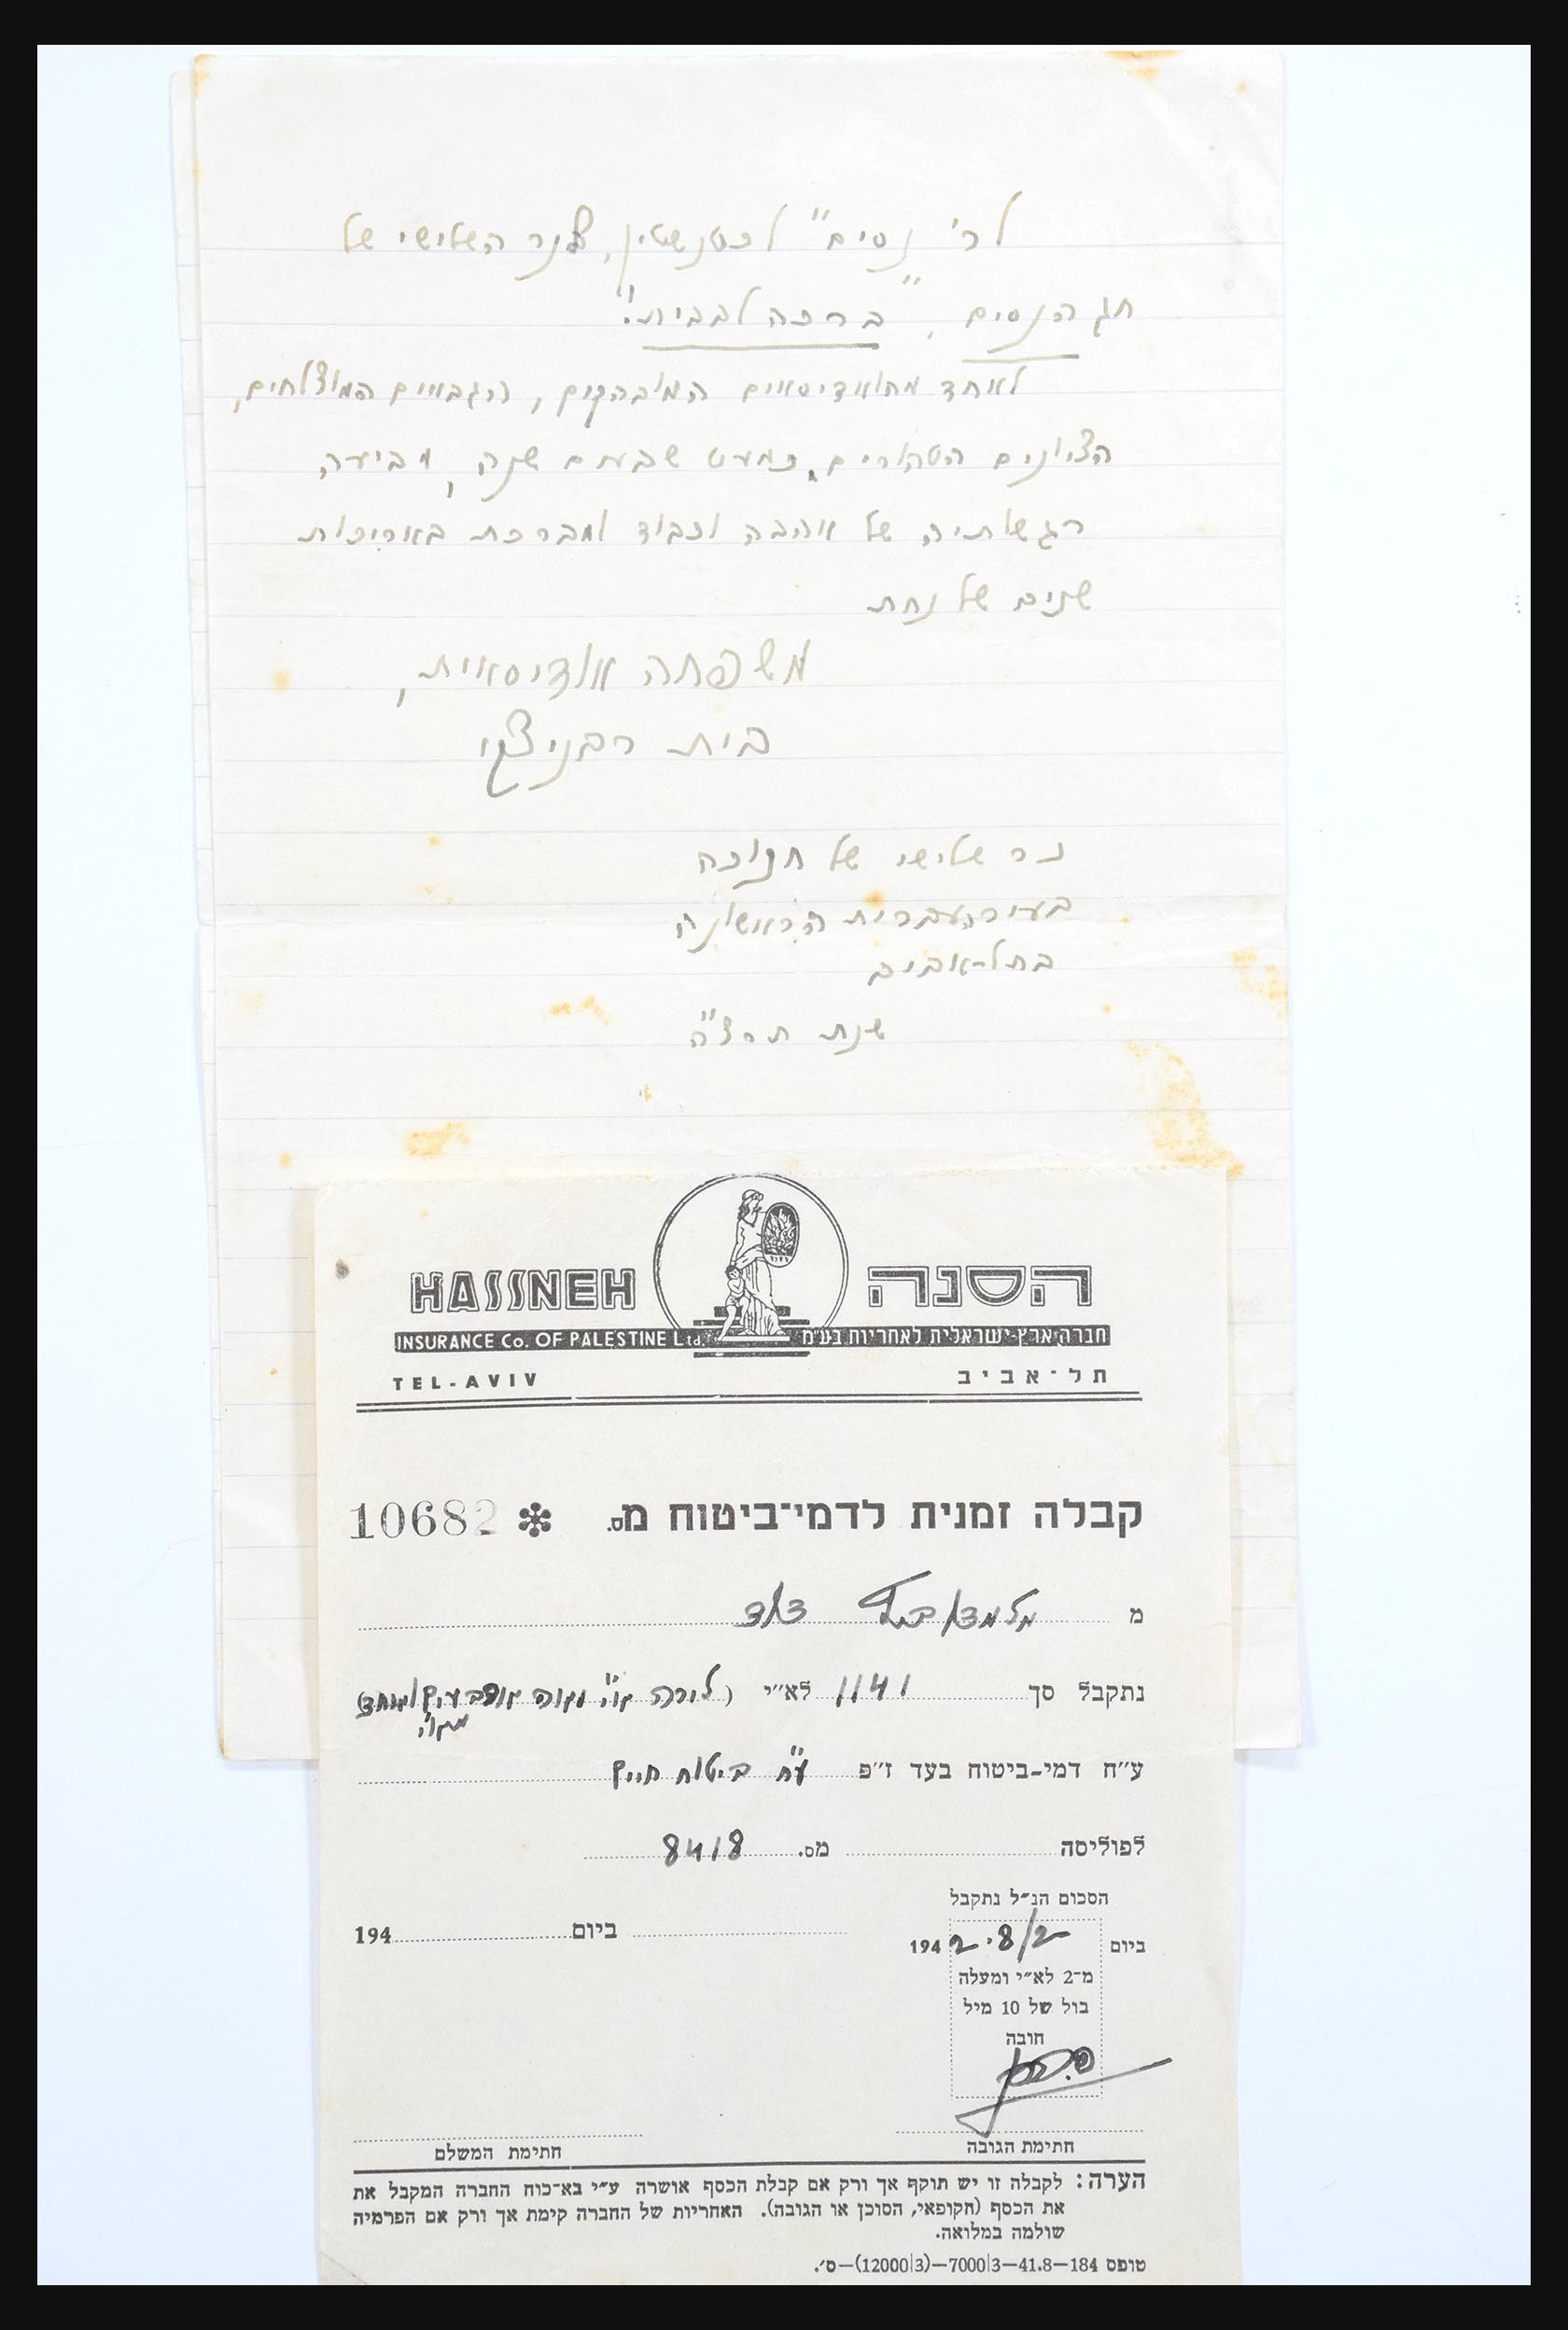 לר' "נסים" ליכטנשטין, בנר השלישי של
חג הנסים, "ברכה לבבית"!
לאחד מהאודיסאים המובהקים, הגבאיים המוצלחים,
הציונים הטהורים, כמעט שבעים שנה, מביעה
רגשותיה של אהבה וכבוד ומברכת באריכות
שנים של נחת
משפחה אודיסאית,
בית רבניצקי
נר שלישי של חנוכה
בעיר העברית הראשונה
בתל-אביב
שנת תרצ"ה
HASSNEH הסנה
INSURANCE Co. OF PALESTINE Ltd. חברה ארץ-ישראלית לאחריות בע"מ
TEL-AVIV תל-אביב
קבלה זמנית לדמי-ביטוח מס. ✻ 10682
מ דוד
נתקבל סך 1141 לא"י (לירה א"י ומאה ארבעים ואחד
מא"י)
ע"ח דמי-ביטוח בעד ז"פ ע"ח ביטוח חיים
לפוליסה מס. 8418
הסכום הנ"ל נתקבל
ביום 2.8/2 194 ביום 194
מ-2 לא"י ומעלה
בול של 10 מיל
חובה
חתימת הגובה חתימת המשלם
הערה: לקבלה זו יש תוקף אך ורק אם קבלת הכסף אושרה ע"י בא-כוח החברה המקבל את
את הכסף (הקופאי, הסוכן או הגובה). האחריות של החברה קימת אך ורק אם הפרמיה
שולמה במלואה.
טופס 184—41.8—7000|3—(12000|3)—ס'.